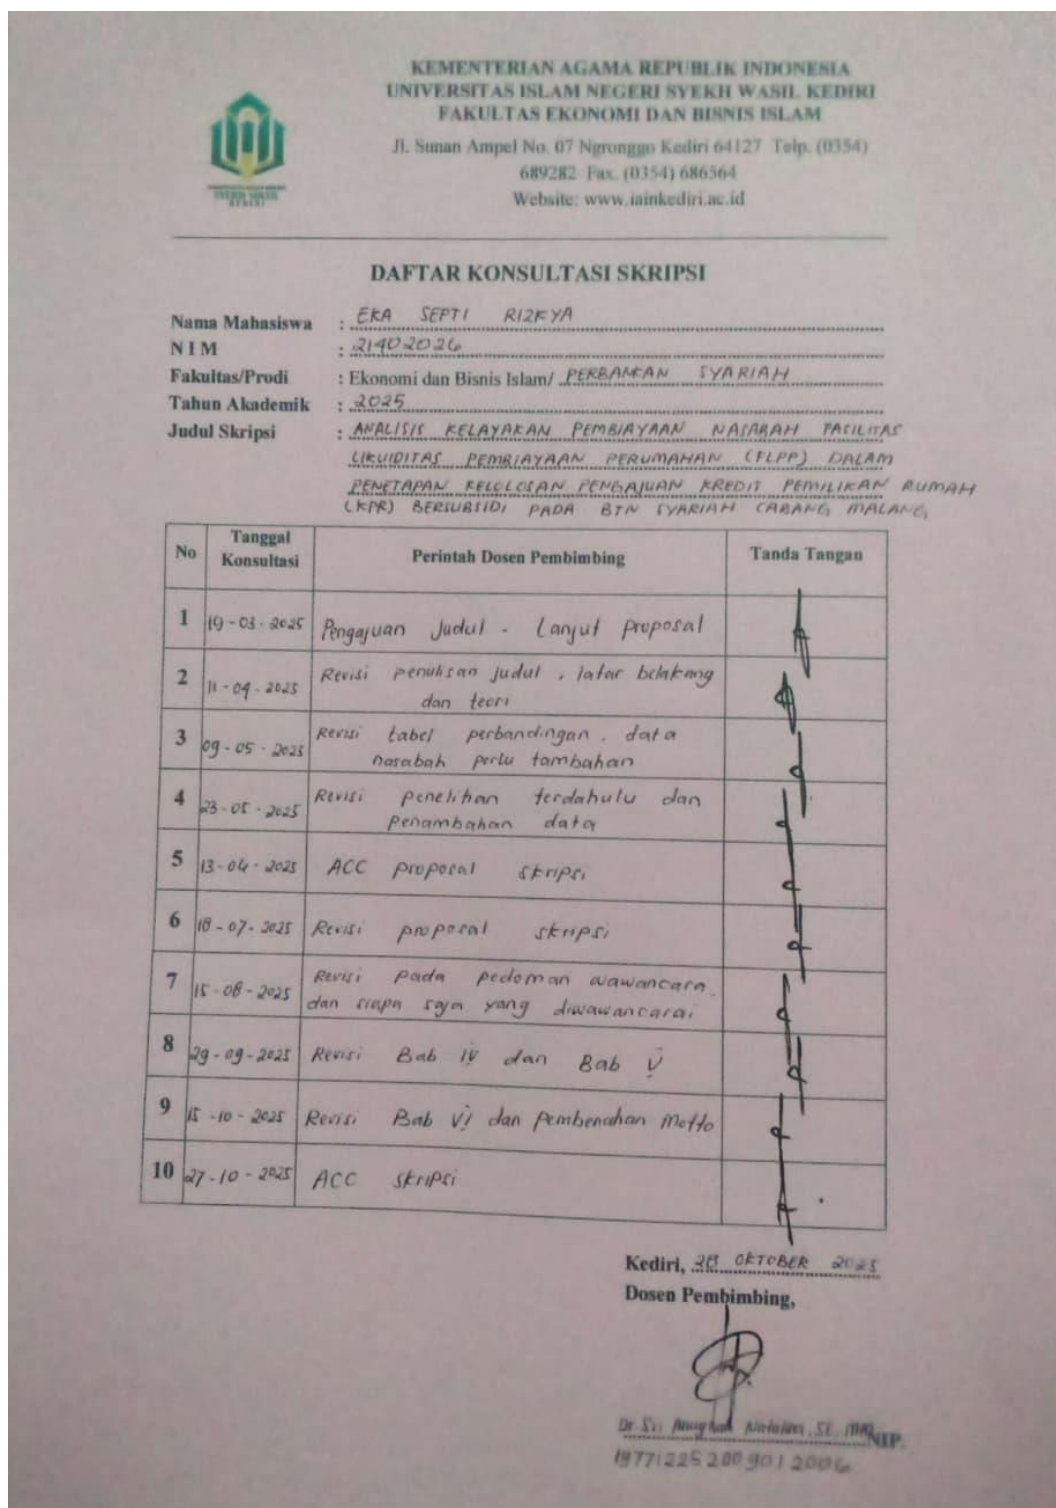 KEMENTERIAN AGAMA REPUBLIK INDONESIA
UNIVERSITAS ISLAM NEGERI SYEKH WASIL KEDIRI
FAKULTAS EKONOMI DAN BISNIS ISLAM
Jl. Sunan Ampel No. 07 Ngronggo Kediri 64127 Telp. (0354)
689282 Fax. (0354) 686564
Website: www.iainkediri.ac.id
SYEKH WASIL
KEDIRI
DAFTAR KONSULTASI SKRIPSI
Nama Mahasiswa : EKA SEPTI RIZKYA
NIM : 21402026
Fakultas/Prodi : Ekonomi dan Bisnis Islam/ PERBANKAN SYARIAH
Tahun Akademik : 2025
Judul Skripsi : ANALISIS KELAYAKAN PEMBIAYAAN NASABAH FASILITAS
LIKUIDITAS PEMBIAYAAN PERUMAHAN (FLPP) DALAM
PENETAPAN KELOLOSAN PENGAJUAN KREDIT PEMILIKAN RUMAH
(KPR) BERSUBSIDI PADA BTN SYARIAH CABANG MALANG
No Tanggal Konsultasi Perintah Dosen Pembimbing Tanda Tangan
1 19-03-2025 Pengajuan Judul - Lanjut proposal
2 11-04-2025 Revisi penulisan judul, latar belakang
dan teori
3 09-05-2025 Revisi tabel perbandingan, data
nasabah perlu tambahan
4 23-05-2025 Revisi penelitian terdahulu dan
penambahan data
5 13-04-2025 ACC proposal skripsi
6 18-07-2025 Revisi proposal skripsi
7 15-08-2025 Revisi pada pedoman wawancara
dan siapa saja yang diwawancarai
8 29-09-2025 Revisi Bab IV dan Bab V
9 15-10-2025 Revisi Bab VI dan Pembenahan Motto
10 27-10-2025 ACC skripsi
Kediri, 28 OKTOBER 2025
Dosen Pembimbing,
Dr. Sri Anugrah Natalina, SE, MM NIP.
197712252009012006